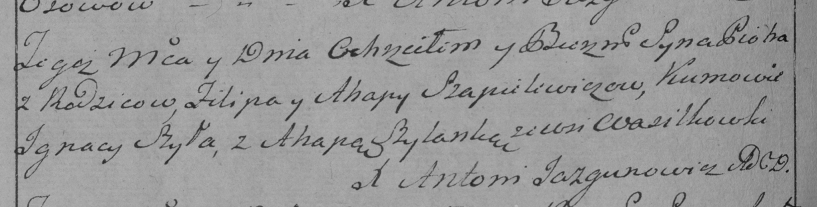 Tegoż Mca y Dnia Ochrzciłem y Bierzm Syna Piotra
z Rodzicow, Filipa y Ahapy Szapielewiczow, Kumowie
Ignacy Szyła, z Ahapą Szylanką zewsi Wasilkowki
X Antoni Jazgunowicz